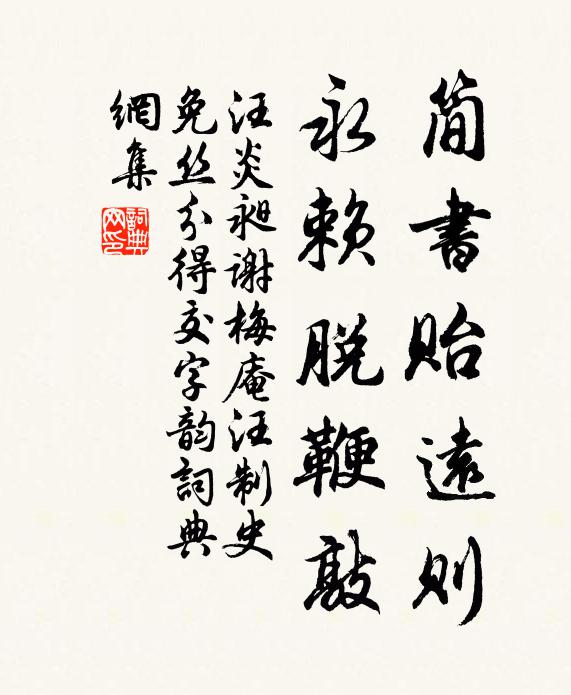 简書貽遠則
永賴脱鞭敲
汪炎昶谢梅庵汪制史
免丝分得交字韵詞典
網集
詞典
网印